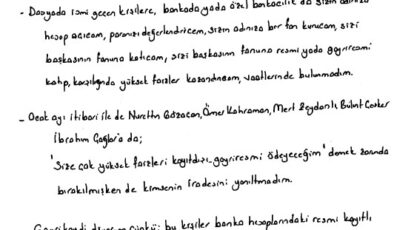 - Dosyada ismi geçen kişilere, bankada yada özel bankacılık da sizin adınıza
hesap açıcam, paranızı değerlendiricem, sizin adınıza bir fon kurucam, sizi
başkasının fonuna katıcam, sizi başkasın fonuna resmi yada gayriresmi
katıp, karşılığında yüksek faizler kazandırıcam, vaatlerinde bulunmadım.
- Ocak ayı itibari ile de Nurettin Ömer Kahraman, Mert Zeydanlı, Bülent
İbrahim Çağlar'a da;
'Size çok yüksek faizleri kayıtdışı, gayriresmi ödeyeceğim' demek zorunda
bırakılmışken de kimsenin iradesini yanıltmadım.
bu kişiler banka hesaplarındaki resmi kayıtlı,